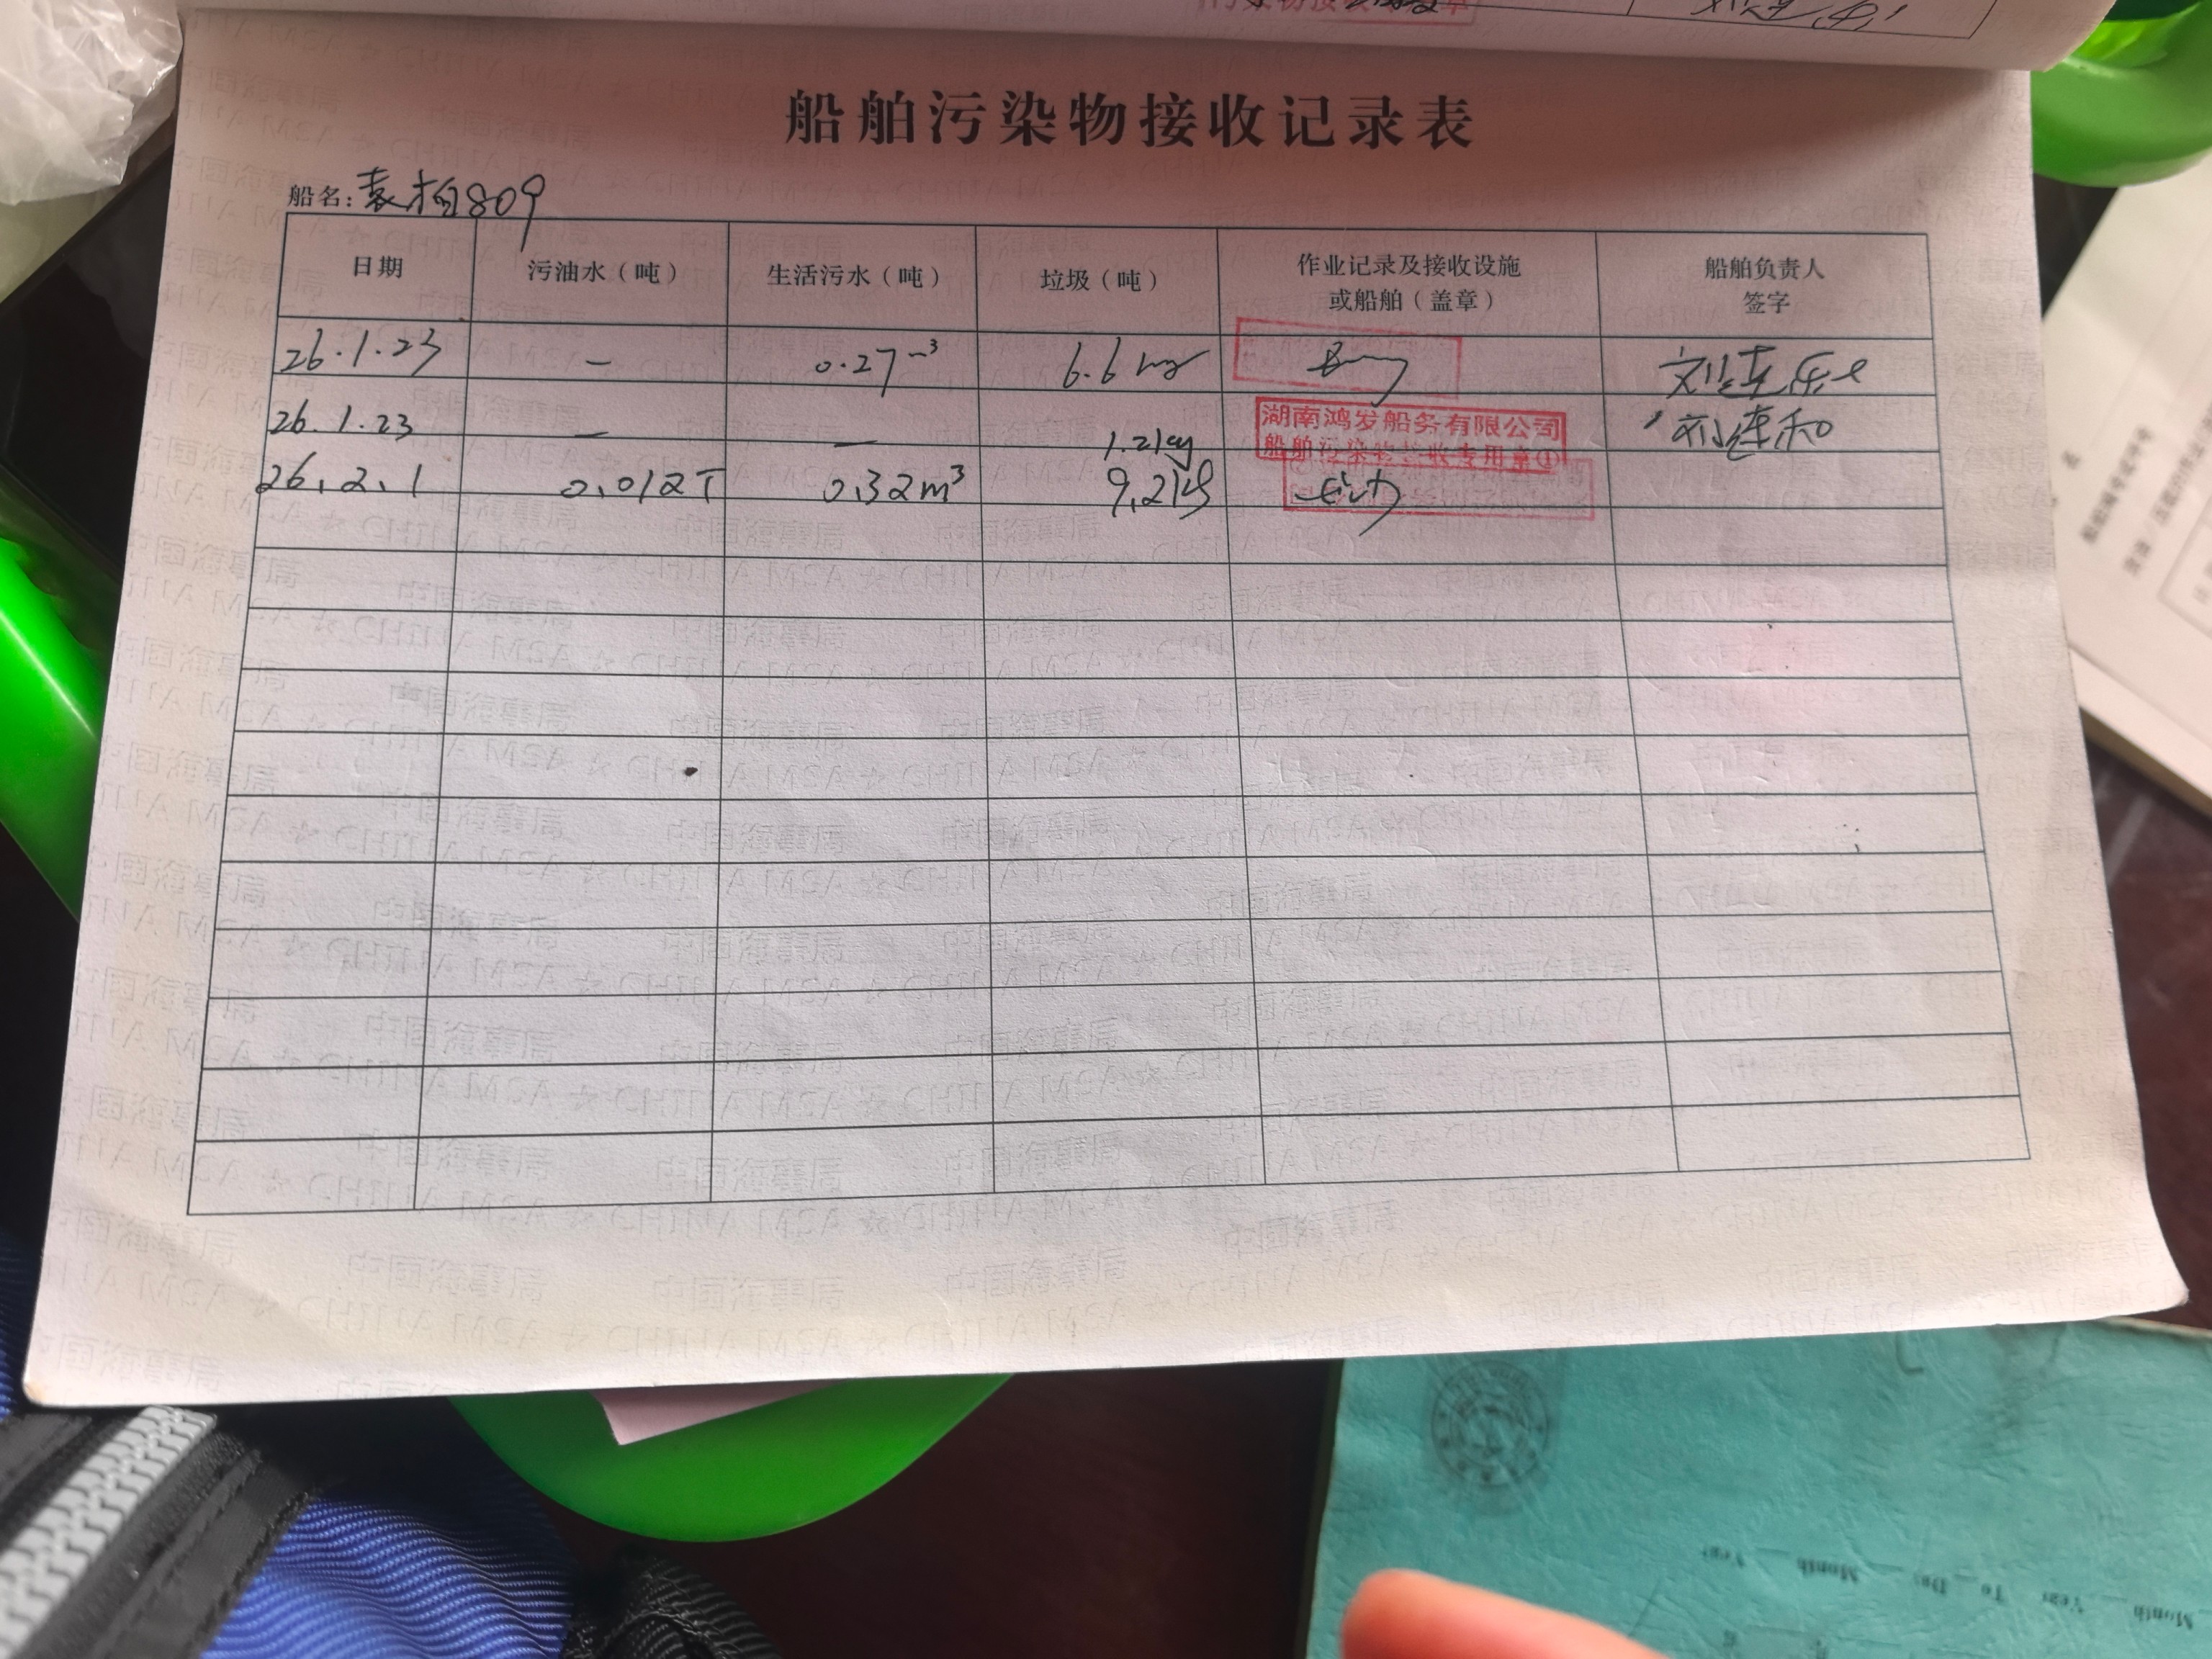 船舶污染物接收记录表
船名: 809
日期 污油水（吨） 生活污水（吨） 垃圾（吨） 作业记录及接收设施或船舶（盖章） 船舶负责人签字
26.1.23 — 0.27m³ 6.6kg
26.1.23 — — 1.2kg 湖南鸿发船务有限公司
船舶污染物接收专用章①
26.2.1 0.012T 0.32m³ 9.2kg
中国海事局
CHINA MSA